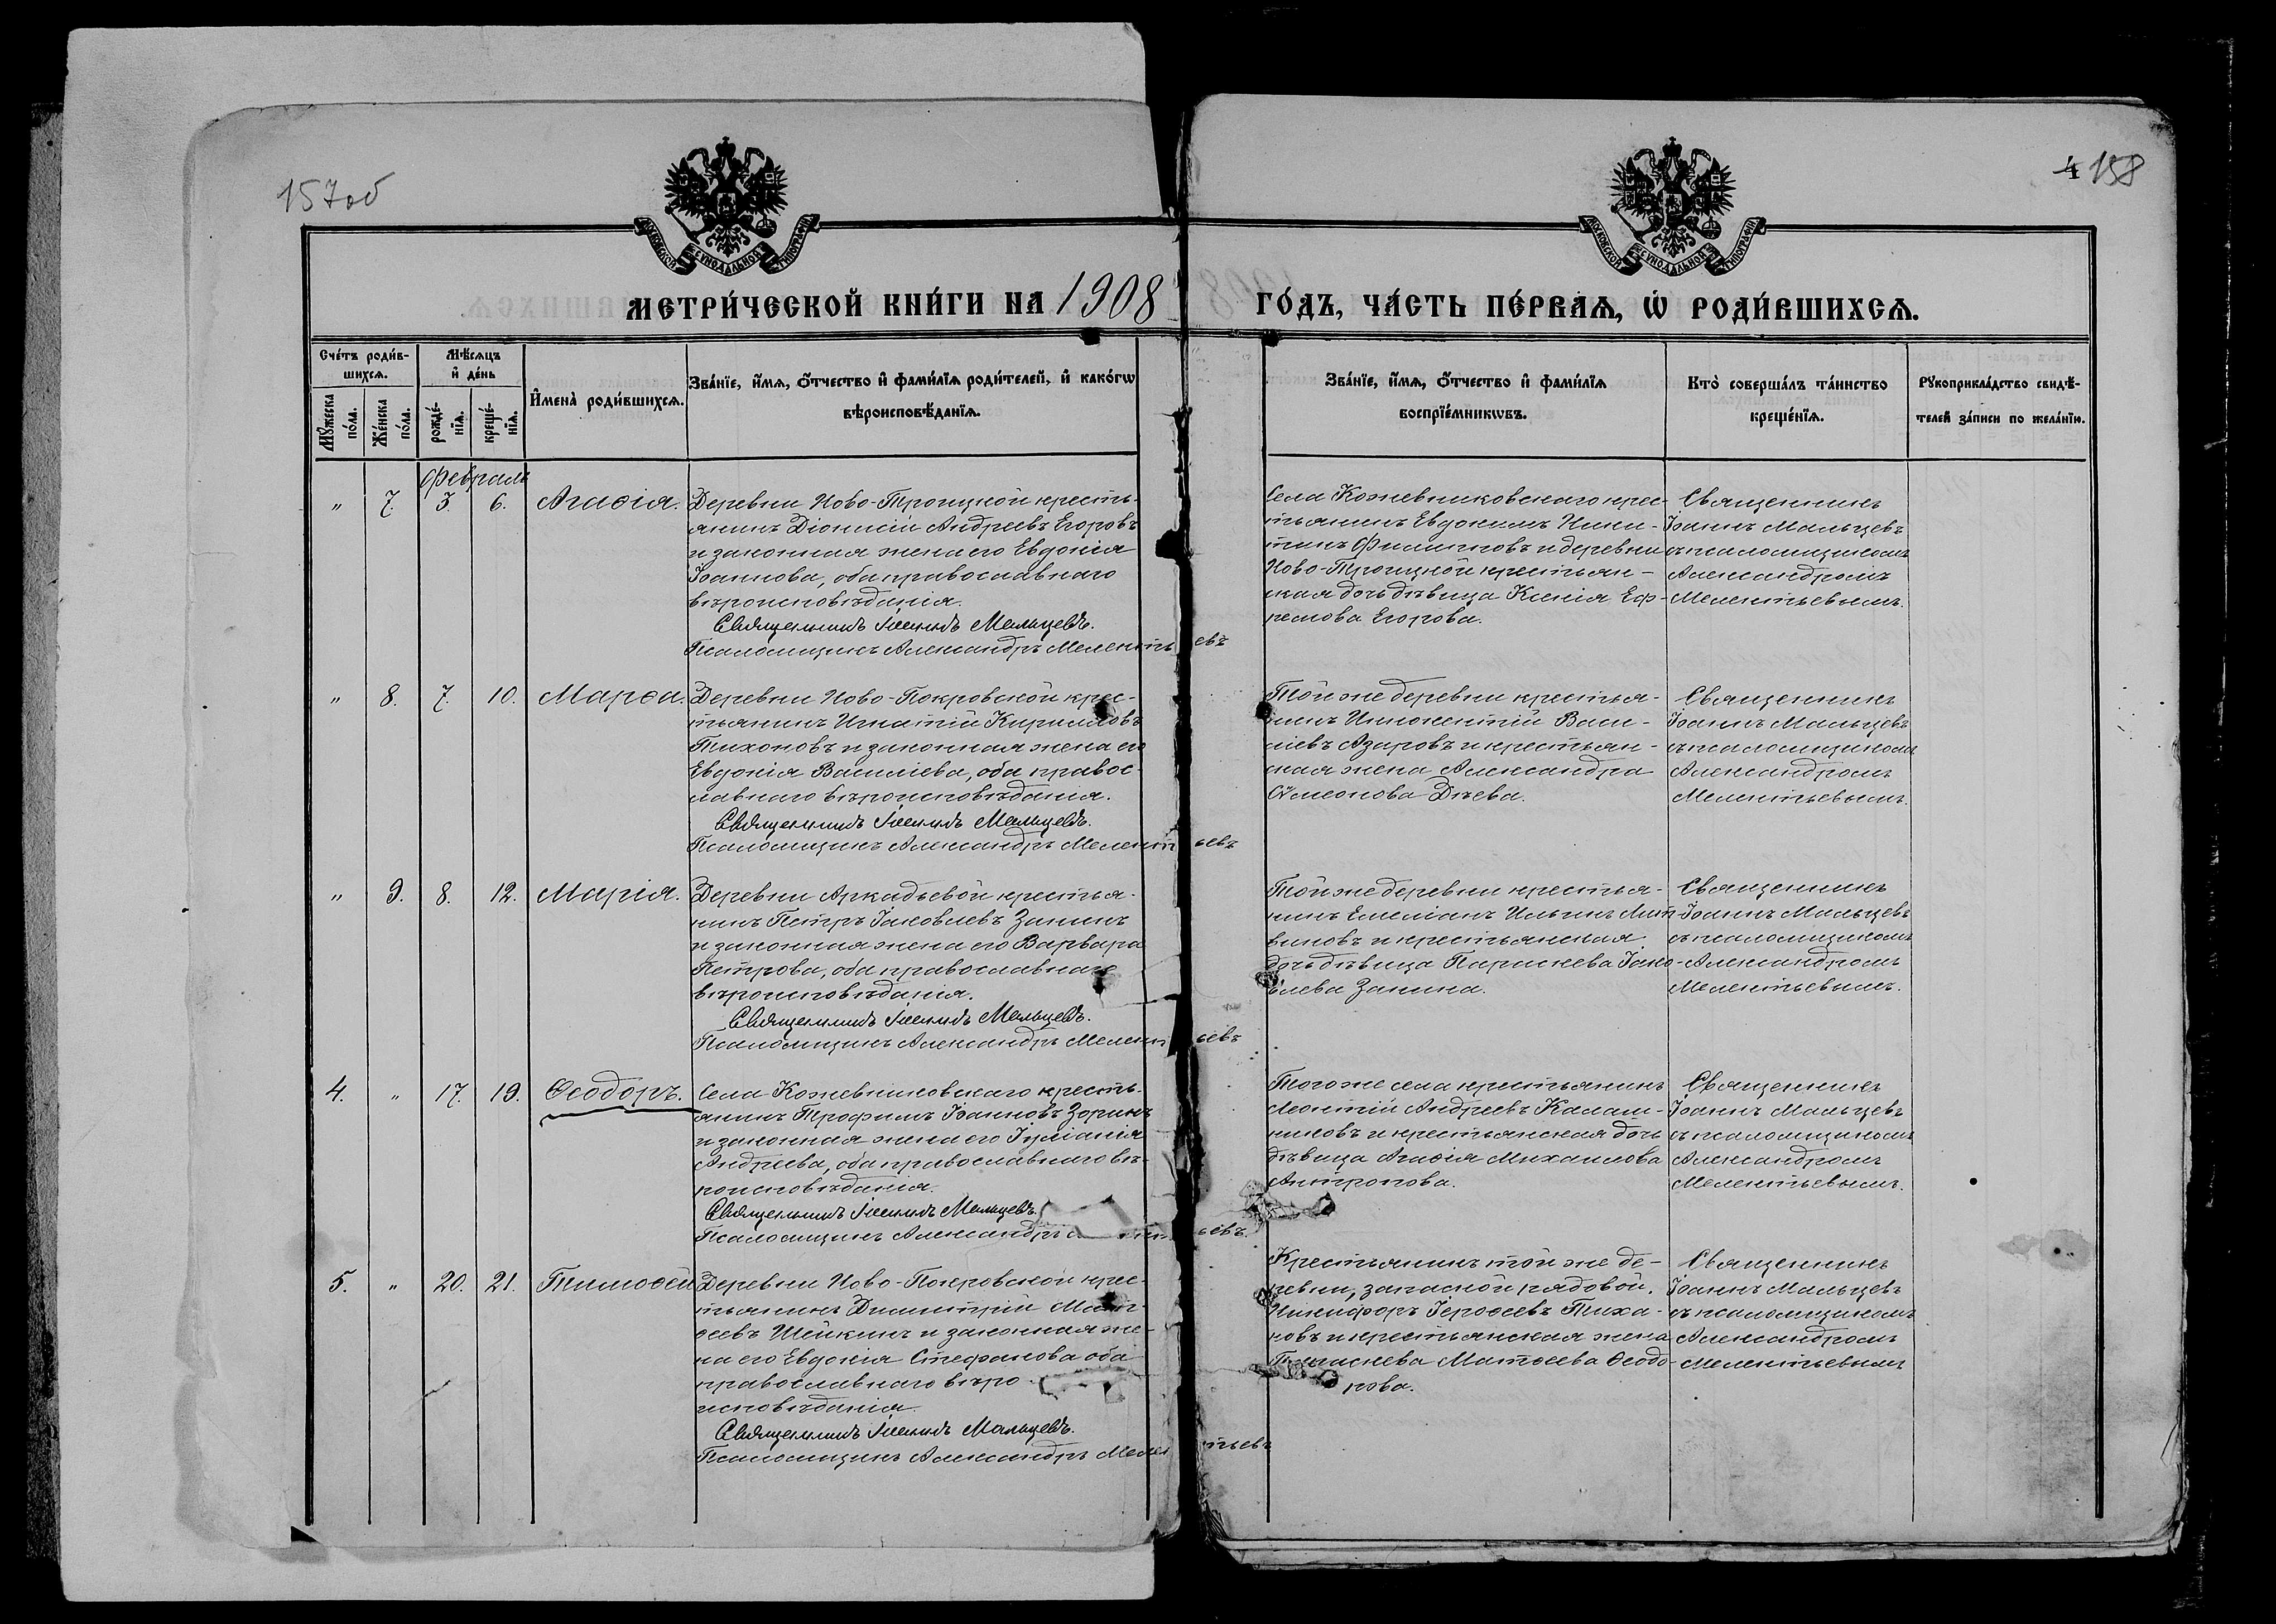 157об
4 158
МОСКОВСКОЙ СѴНОДАЛЬНОЙ ТИПОГРАФІИ
МОСКОВСКОЙ СѴНОДАЛЬНОЙ ТИПОГРАФІИ
МЕТРИ́ЧЕСКОЙ КНИ́ГИ НА 1908
ГО́ДЪ, ЧА́СТЬ ПЕ́РВАѦ, Ѡ҆ РОДИ́ВШИХСѦ.
Сче́тъ роди́в-
шихсѧ.
Мꙋ́жеска по́ла.
Же́нска по́ла.
Мѣ́сѧцъ
и҆ де́нь
рожде́-
нїѧ.
креще́-
нїѧ.
И҆мена̀ роди́вшихсѧ.
Зва́нїе, и҆́мѧ, ѻ҆́тчество и҆ фами́лїѧ роди́телей, и҆ како́гѡ
вѣроисповѣ́данїѧ.
Зва́нїе, и҆́мѧ, ѻ҆́тчество и҆ фами́лїѧ
воспрїе́мникѡвъ.
Кто̀ соверша́лъ та́инство
креще́нїѧ.
Рꙋкоприкла́дство свидѣ́-
телей за́писи по жела́нїю.
Февраль
" 7. 3. 6. Агаѳія.
Деревни Ново-Троицкой кресть-
янинъ Діонисій Андреевъ Егоровъ
и законная жена его Евдокія
Іоаннова, оба православнаго
вѣроисповѣданія.
Священникъ Іоаннъ Мальцевъ.
Псаломщикъ Александръ Мелентьевъ
Села Кожевниковскаго крес-
тьянинъ Евдокимъ Ники-
тинъ Филиповъ и деревни
Ново-Троицкой крестьян-
ская дочь дѣвица Ксенія Еф-
ремова Егорова.
Священникъ
Іоаннъ Мальцевъ
съ псаломщикомъ
Александромъ
Мелентьевымъ.
" 8. 7. 10. Марѳа.
Деревни Ново-Покровской крес-
тьянинъ Игнатій Кирилловъ
Тихоновъ и законная жена его
Евдокія Василіева, оба правос-
лавнаго вѣроисповѣданія.
Священникъ Іоаннъ Мальцевъ.
Псаломщикъ Александръ Мелентьевъ
Той же деревни крестья-
нинъ Иннокентій Васи-
ліевъ Азаровъ и крестьян-
ская жена Александра
Сѵмеонова Дѣева.
Священникъ
Іоаннъ Мальцевъ
съ псаломщикомъ
Александромъ
Мелентьевымъ.
" 9. 8. 12. Марія.
Деревни Аркадьевой крестья-
нинъ Петръ Іаковлевъ Занинъ
и законная жена его Варвара
Петрова, оба православнаго
вѣроисповѣданія.
Священникъ Іоаннъ Мальцевъ.
Псаломщикъ Александръ Мелентьевъ
Той же деревни крестья-
нинъ Емеліанъ Ильинъ Лит-
виновъ и крестьянская
дочь дѣвица Параскева Іако-
влева Занина.
Священникъ
Іоаннъ Мальцевъ
съ псаломщикомъ
Александромъ
Мелентьевымъ.
4. " 17. 19. Ѳеодоръ.
Села Кожевниковскаго кресть-
янинъ Трофимъ Іоанновъ Зоринъ
и законная жена его Іуліанія
Андреева, оба православнаго вѣ-
роисповѣданія.
Священникъ Іоаннъ Мальцевъ.
Псаломщикъ Александръ
Того же села крестьянинъ
Леонтій Андреевъ Калаш-
никовъ и крестьянская дочь
дѣвица Агаѳія Михаилова
Антропова.
Священникъ
Іоаннъ Мальцевъ
съ псаломщикомъ
Александромъ
Мелентьевымъ.
5. " 20. 21. Тимоѳей
Деревни Ново-Покровской крес-
тьянинъ Димитрій Мат-
ѳеевъ Шейкинъ и законная же-
на его Евдокія Стефанова оба
православнаго вѣро-
исповѣданія.
Священникъ Іоаннъ Мальцевъ.
Псаломщикъ Александръ Мелентьевъ
Крестьянинъ той же де-
ревни, запасной рядовой
Никифоръ Іероѳеевъ Тиха-
новъ и крестьянская жена
Параскева Матѳеева Ѳеодо-
рова.
Священникъ
Іоаннъ Мальцевъ
съ псаломщикомъ
Александромъ
Мелентьевымъ